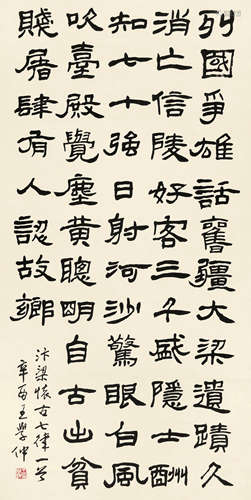 列國爭雄話舊疆大梁遺蹟久
消亡信陵好客三千盛隱士酬
知七十強日射河沙驚眼白風
吹臺殿覺塵黃聰明自古出貧
賤屠肆有人認故鄉
汴梁懷古七律一首
辛酉王學仲